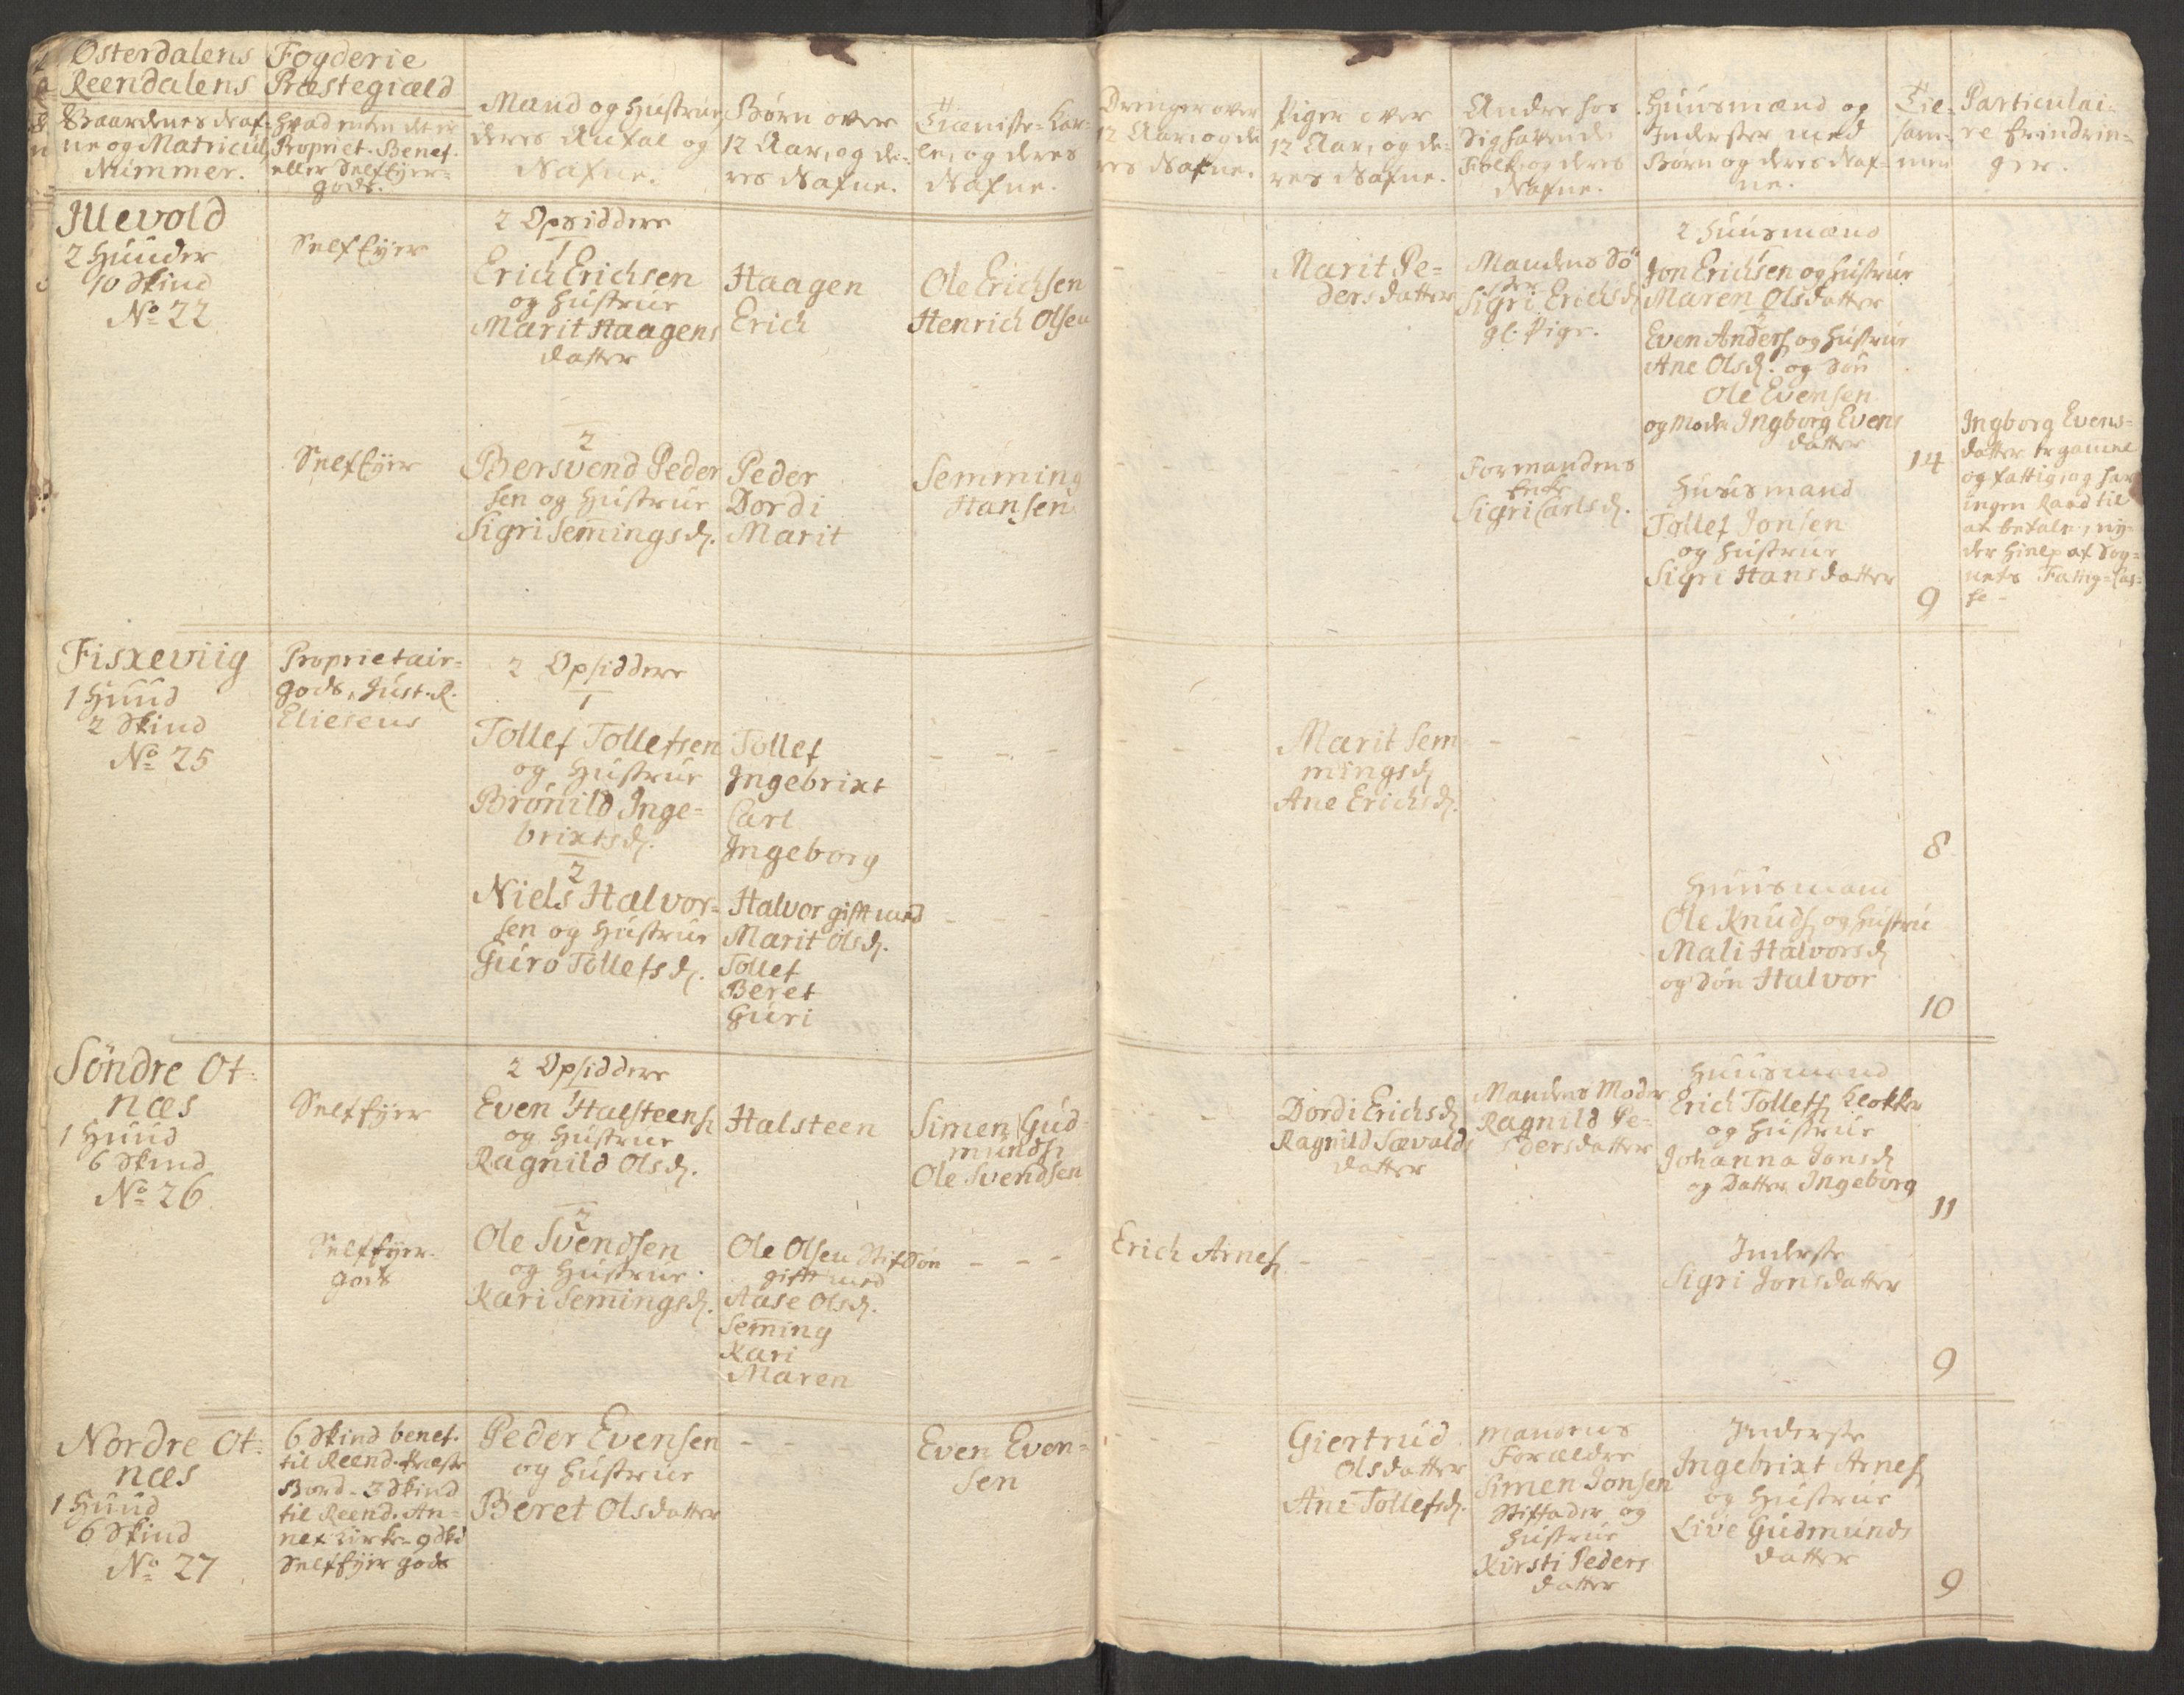 Østerdalens Fogderie
Reendalens Præstegiæld
Gaardenes Naf-
ne og Matricul
Nummer.
Hvad enten det er
Propriet. Benef.
eller Selfeyer-
gods.
Mand og Hustrue,
deres Antal og
Nafne.
Børn over
12 Aar, og de-
res Nafne.
Tieniste-Kar-
le, og deres
Nafne.
Drenger over
12 Aar, og de
res Nafne.
Piger over
12 Aar, og de-
res Nafne.
Andre hos
Sig havende
Folk, og deres
Nafne.
Huusmænd og
Inderster med
Børn og deres Naf-
ne.
Til-
sam-
men
Particulai-
re Erindrin-
ger.
Illevold
2 Huuder
10 Skind
No 22
Selfeyer
2 Opsiddere
1
Erich Erichsen
og Hustrue
Marit Haagens
datter
Haagen
Erich
Ole Erichsen
Henrich Olsen
Marit Pe-
dersdatter
Mandens Sø
ster
Sigri Erichsd.
gl. Pige.
2 Huusmænd
Jon Erichsen og Hustrue
Maren Olsdatter
2
Even Anders. og Hustrue
Ane Olsd. og Søn
Ole Evensen
og Moder Ingborg Evens
datter
14
Ingborg Evens-
datter er gamel
og fattig, og har
ingen Raad til
at betale, ny-
der Hielp af Sog-
nets Fattig-Cas-
se
2
Selfeyer
Bersvend Peder
sen og Hustrue
Sigri Semingsd.
Peder
Dordi
Marit
Semming
Hansen
Formandens
Enke
Sigri Carlsd.
Huusmand
Tollef Jonsen
og Hustrue
Sigri Hansdatter
9
Fiskeviig
1 Huud
2 Skind
No 25
Proprietair-
gods, Just. R.
Eliesens
2 Opsiddere
1
Tollef Tollefsen
og Hustrue
Brønild Inge-
brixtsd.
Tollef
Ingebrixt
Carl
Ingeborg
Marit Sem
mingsd.
Ane Erichsd.
8
2
Niels Halvor-
sen og Hustrue
Guro Tollefsd.
Halvor gift med
Marit Olsd.
Tollef
Beret
Guri
Huusmand
Ole Knuds. og Hustrue
Mali Halvorsd.
og Søn Halvor
10
Søndre Ot-
næs
1 Huud
6 Skind
No 26
Selfeyer
2 Opsiddere
1
Even Halsteens.
og Hustrue
Ragnild Olsd.
Halsteen
Simen Gud-
munds.
Ole Svendsen
Dordi Erichsd.
Ragnild Sævolds
datter
Mandens Moder
Ragnild Pe-
dersdatter
Huusmand
Erich Tollefs. Klokker
og Hustrue
Johanna Jonsd.
og Datter Ingeborg
11
2
Selfeyer-
gods
Ole Svendsen
og Hustrue
Kari Semingsd.
Ole Olsen Stifsøn
gift med
Aase Olsd.
Seming
Kari
Maren
Erich Arnes.
Inderste
Sigri Jonsdatter
9
Nordre Ot-
næs
1 Huud
6 Skind
No 27
6 Skind benef.
til Reend. Præste
Bord. 3 Skind
til Reend. An-
nex Kirke. 9 Skd
Selfeyer gods
Peder Evensen
og Hustrue
Beret Olsdatter
Even Even-
sen
Giertrud
Olsdatter
Ane Tollefsd.
Mandens
Forældre
Simen Jonsen
Stiffader og
Hustrue
Kirsti Peders
datter
Inderste
Ingebrixt Arnes.
og Hustrue
Live Gudmunds
datter
9